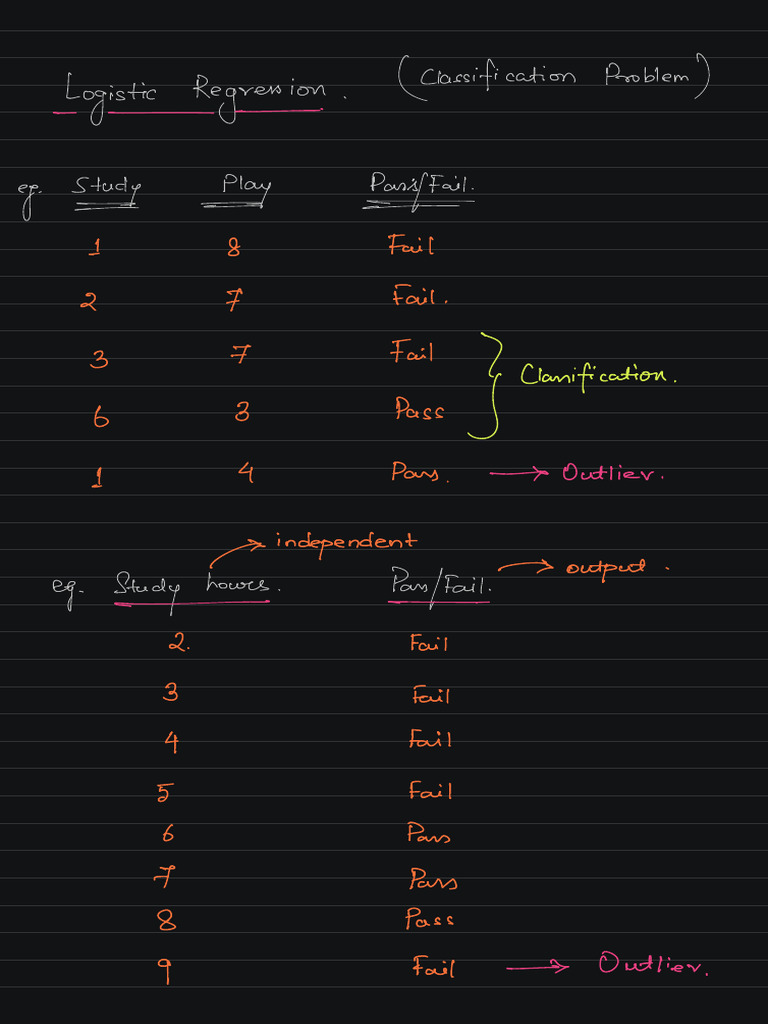 Logistic Regression. (Classification Problem)
eg. Study Play Pass/Fail.
1 8 Fail
2 7 Fail.
3 7 Fail
Classification.
6 3 Pass
1 4 Pass. → Outlier.
→ independent
eg. Study hours. Pass/Fail. → output.
2. Fail
3 Fail
4 Fail
5 Fail
6 Pass
7 Pass
8 Pass
9 Fail → Outlier.